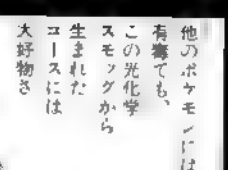 他のポケモンには
有毒でも、
この光化学
スモッグから
生まれた
コースには
大好物さ